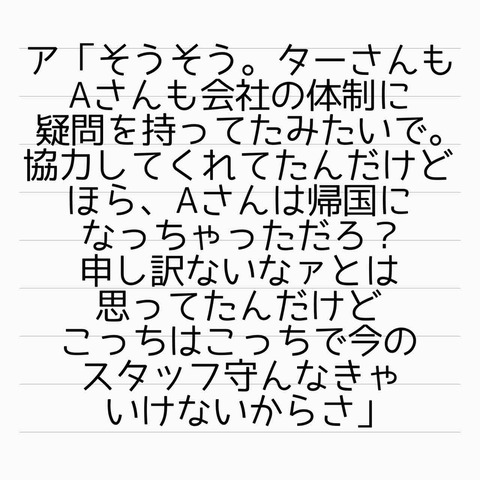 ア「そうそう。ターさんも
Aさんも会社の体制に
疑問を持ってたみたいで。
協力してくれてたんだけど
ほら、Aさんは帰国に
なっちゃっただろ？
申し訳ないなァとは
思ってたんだけど
こっちはこっちで今の
スタッフ守んなきゃ
いけないからさ」